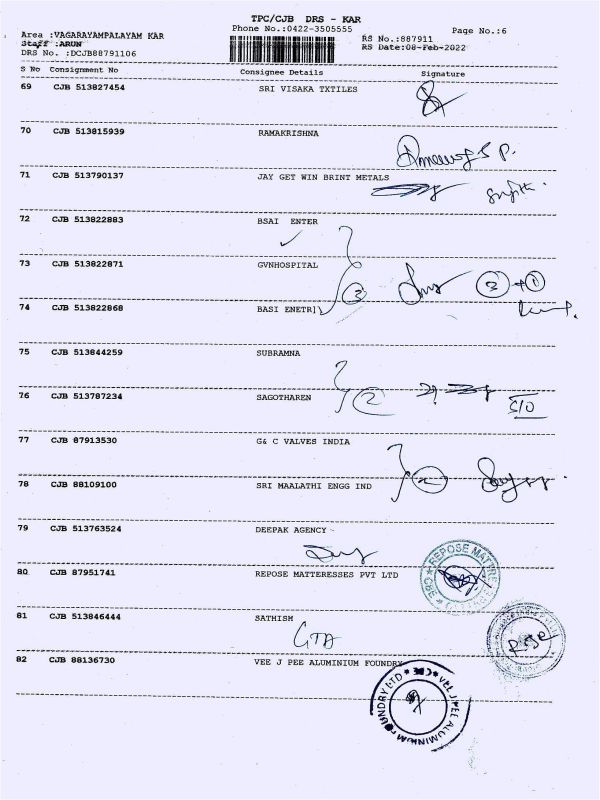 TPC/CJB DRS - KAR
Area :VAGARAYAMPALAYAM KAR Phone No.:0422-3505555 RS No.:887911 Page No.:6
Staff :ARUN RS Date:08-Feb-2022
DRS No. :DCJB88791106
S No Consignment No Consignee Details Signature
69 CJB 513827454 SRI VISAKA TXTILES
70 CJB 513815939 RAMAKRISHNA
71 CJB 513790137 JAY GET WIN BRINT METALS
72 CJB 513822883 BSAI ENTER
73 CJB 513822871 GVNHOSPITAL
3 3 + 1
74 CJB 513822868 BASI ENETRI
75 CJB 513844259 SUBRAMNA
76 CJB 513787234 SAGOTHAREN
2
77 CJB 87913530 G& C VALVES INDIA
2
78 CJB 88109100 SRI MAALATHI ENGG IND
79 CJB 513763524 DEEPAK AGENCY
80 CJB 87951741 REPOSE MATTERESSES PVT LTD
REPOSE MATTRE
81 CJB 513846444 SATHISH
82 CJB 88136730 VEE J PEE ALUMINIUM FOUNDRY
VEE J PEE ALUMINIUM FOUNDRY LTD